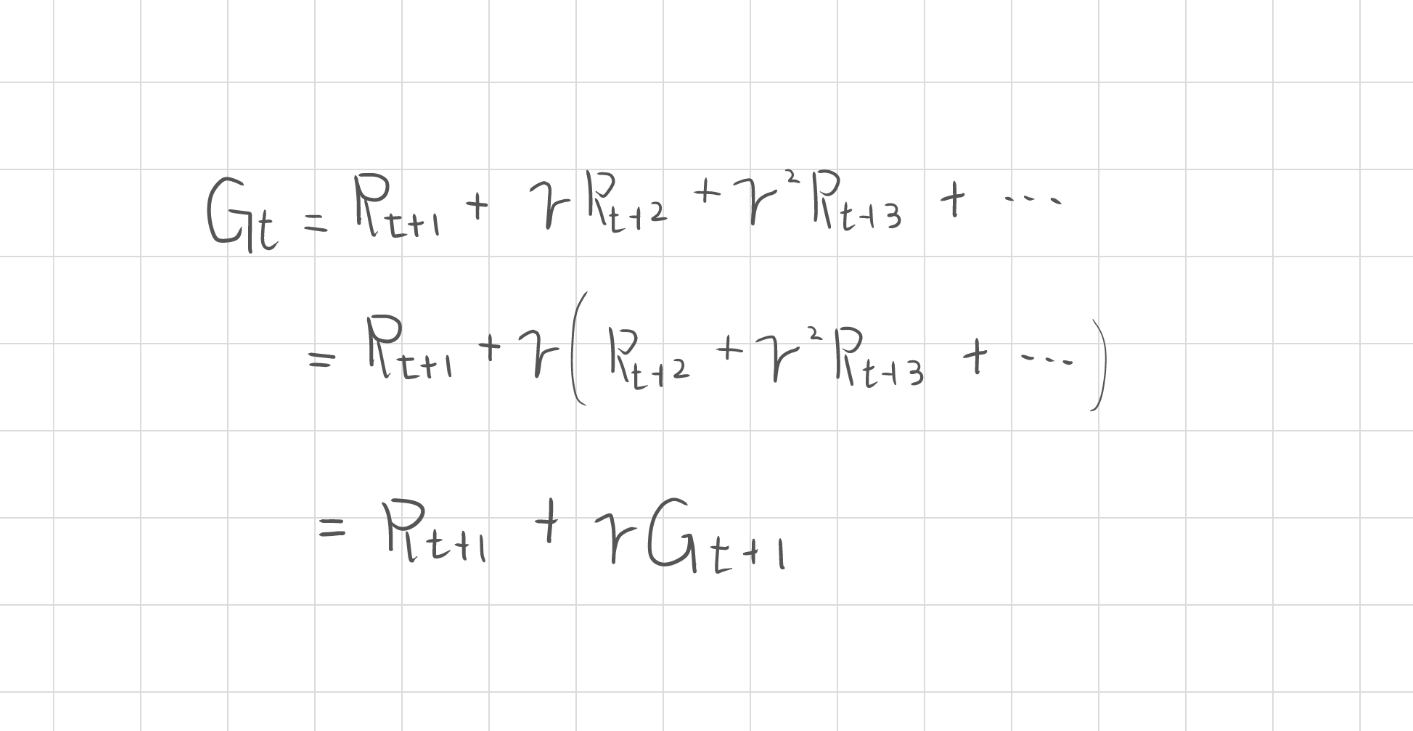 Gₜ = Rₜ₊₁ + γRₜ₊₂ + γ²Rₜ₊₃ + ⋯
= Rₜ₊₁ + γ(Rₜ₊₂ + γ²Rₜ₊₃ + ⋯)
= Rₜ₊₁ + γGₜ₊₁